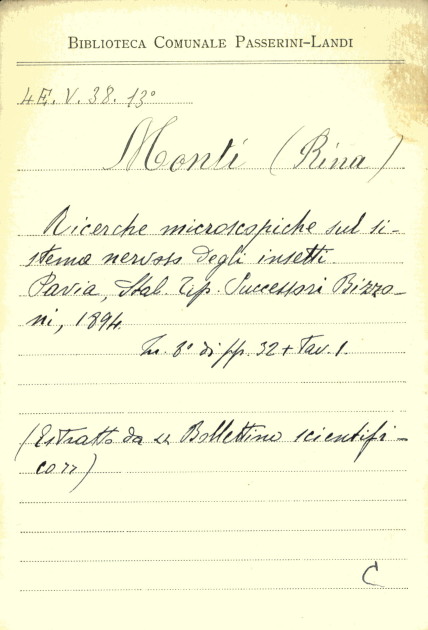 BIBLIOTECA COMUNALE PASSERINI-LANDI
4E. V. 38. 13º
Monti (Rina)
Ricerche microscopiche sul si-
stema nervoso degli insetti.
Pavia, Stab. Tip. Successori Bizzo-
ni, 1894.
In 8º di pp. 32 + Tav. 1.
(Estratto da "Bollettino scientifi-
co")
C